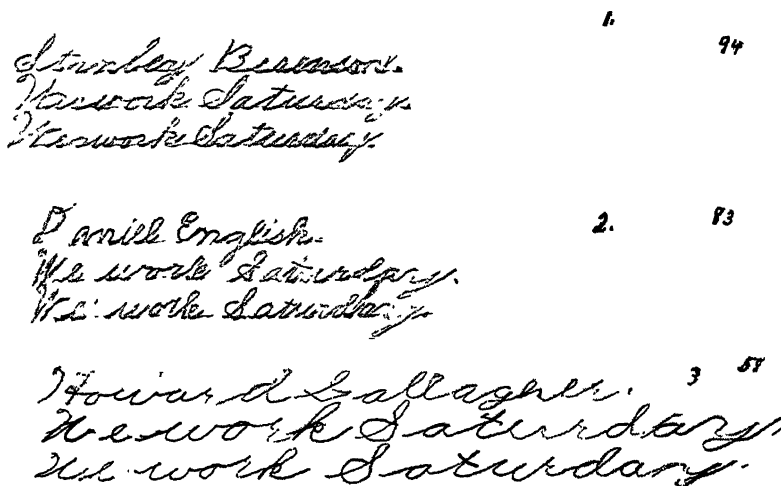 1. 94
Stanley Berenson.
We work Saturday.
We work Saturday.
2. 83
Daniel English.
We work Saturday.
We work Saturday.
3 58
Howard Gallagher.
We work Saturday.
We work Saturday.